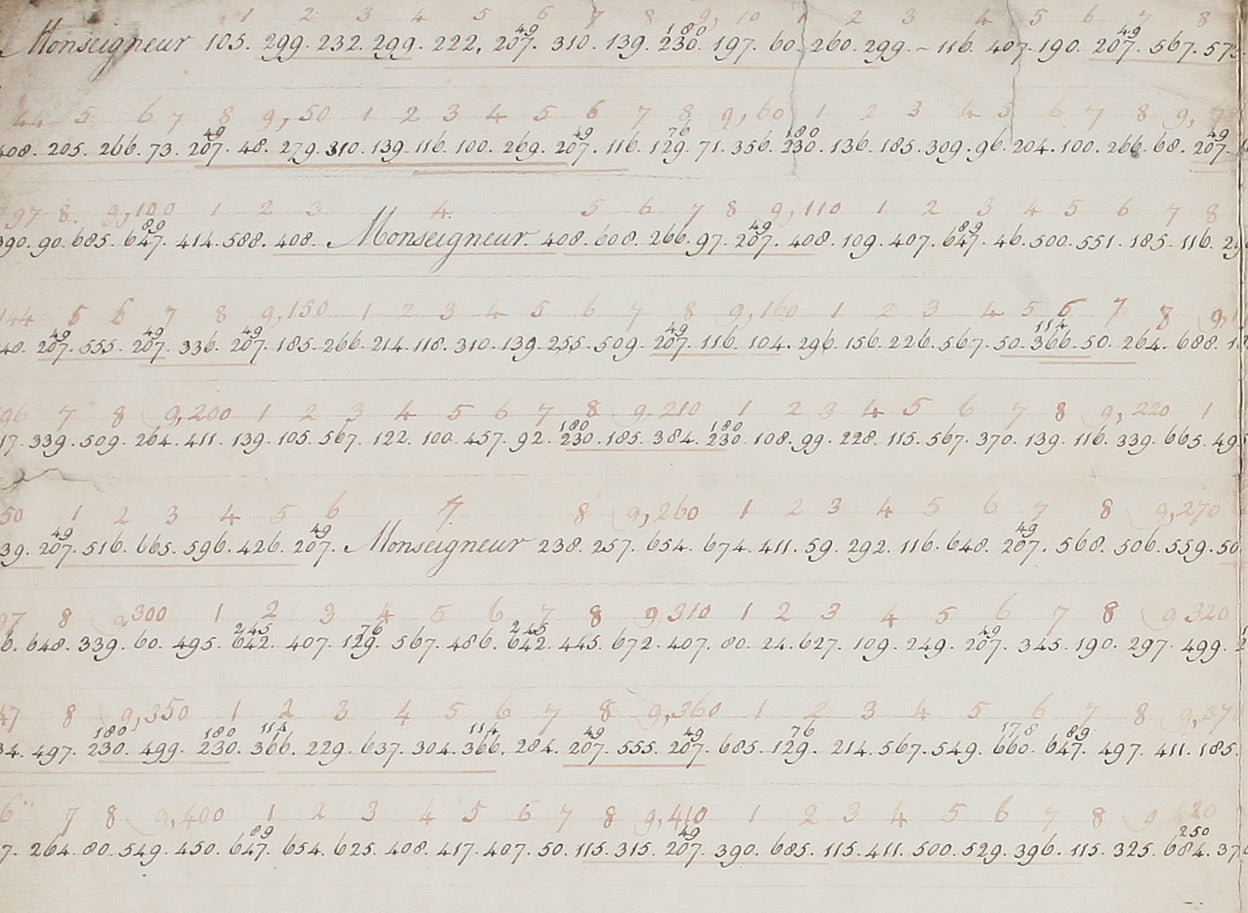 1 2 3 4 5 6 7 8 9, 10 1 2 3 4 5 6 7 8
49 180 49
Monseigneur 105. 299. 232. 299. 222. 207. 310. 139. 230. 197. 60. 260. 299. ~ 116. 407. 190. 207. 567.
44 5 6 7 8 9, 50 1 2 3 4 5 6 7 8 9, 60 1 2 3 4 5 6 7 8 9,
49 49 76 180 49
408. 205. 266. 73. 207. 48. 279. 310. 139. 116. 100. 269. 207. 116. 129. 71. 356. 230. 136. 185. 309. 96. 204. 100. 266. 68. 207.
97 8. 9, 100 1 2 3 4. 5 6 7 8 9, 110 1 2 3 4 5 6 7 8
89 49 89
390. 90. 685. 647. 414. 588. 408. Monseigneur. 408. 608. 266. 97. 207. 408. 109. 407. 647. 46. 500. 551. 185. 116.
144 5 6 7 8 9, 150 1 2 3 4 5 6 7 8 9, 160 1 2 3 4 5 6 7 8 9,
49 49 49 49 114
207. 555. 207. 336. 207. 185. 266. 214. 118. 310. 139. 255. 509. 207. 116. 104. 296. 156. 226. 567. 50. 366. 50. 264. 688.
96 7 8 9, 200 1 2 3 4 5 6 7 8 9, 210 1 2 3 4 5 6 7 8 9, 220 1
180 180
17. 339. 509. 264. 411. 139. 105. 567. 122. 100. 457. 92. 230. 185. 384. 230. 108. 99. 228. 115. 567. 370. 139. 116. 339. 665.
50 1 2 3 4 5 6 7 8 9, 260 1 2 3 4 5 6 7 8 9, 270
49 49 49
39. 207. 516. 665. 596. 426. 207. Monseigneur 238. 257. 654. 674. 411. 59. 292. 116. 648. 207. 568. 506. 559. 50
97 8 9 300 1 2 3 4 5 6 7 8 9 310 1 2 3 4 5 6 7 8 9 320
245 76 245 49
6. 648. 339. 60. 495. 642. 407. 129. 567. 486. 642. 445. 672. 407. 80. 24. 627. 109. 249. 207. 345. 190. 297. 499.
47 8 9, 350 1 2 3 4 5 6 7 8 9, 360 1 2 3 4 5 6 7 8 9, 37
180 180 114 114 49 49 76 178 89
34. 497. 230. 499. 230. 366. 229. 637. 304. 366. 284. 207. 555. 207. 685. 129. 214. 567. 549. 660. 647. 497. 411. 185.
6 7 8 9, 400 1 2 3 4 5 6 7 8 9, 410 1 2 3 4 5 6 7 8 9 420
89 49 250
7. 264. 80. 549. 450. 647. 654. 625. 408. 417. 407. 50. 115. 315. 207. 390. 685. 115. 411. 500. 529. 396. 115. 325. 684. 37